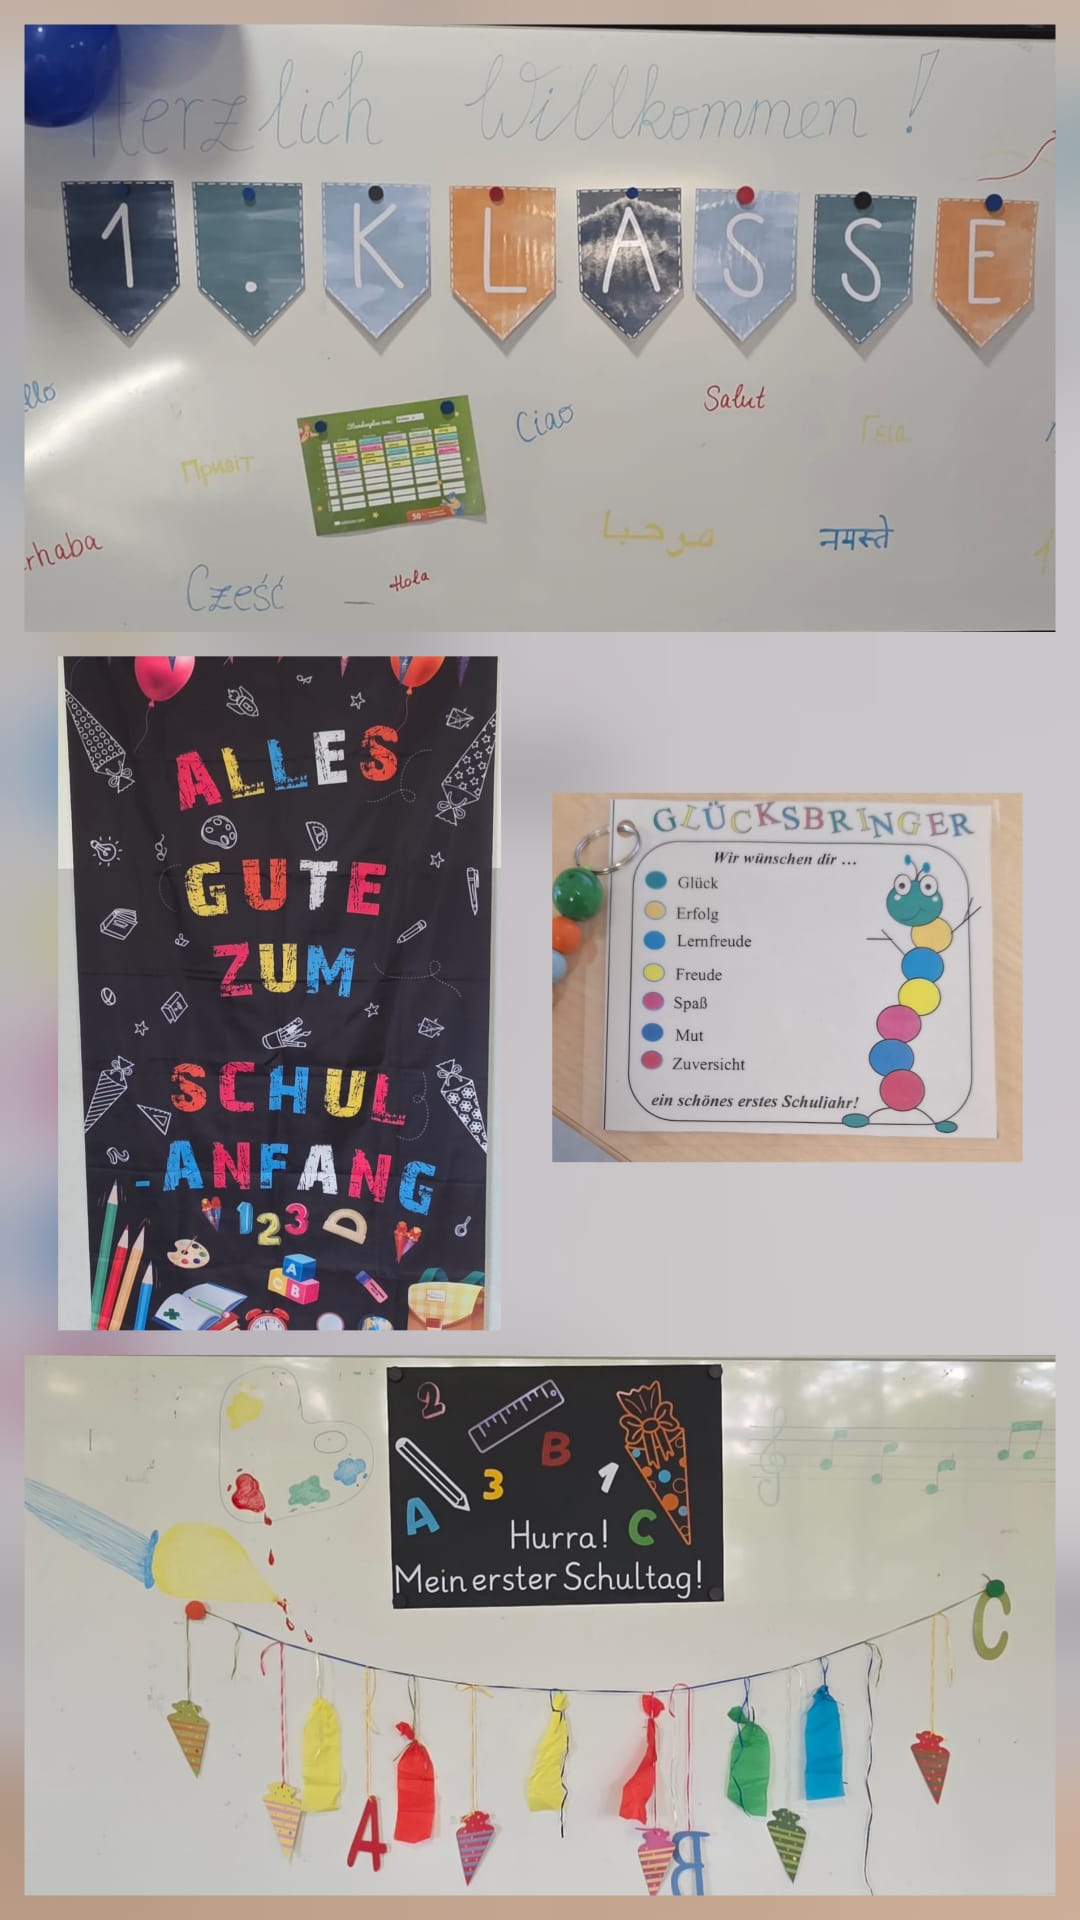 Herzlich Willkommen!
1. KLASSE
llo
Ciao
Salut
Гєіа
Привіт
Stundenplan von:
50
rhaba
مرحبا
नमस्ते
Cześć
Hola
ALLES
GUTE
ZUM
SCHUL
-ANFANG
123
A
C B
GLÜCKSBRINGER
Wir wünschen dir ...
Glück
Erfolg
Lernfreude
Freude
Spaß
Mut
Zuversicht
ein schönes erstes Schuljahr!
2
B
3
1
A
C
Hurra!
Mein erster Schultag!
C
A
B